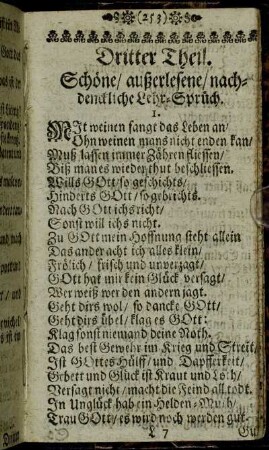 (253)
Dritter Theil.
Schöne/ außerlesene/ nach-
dencklicheLehr-Sprüch.
I.
MIt weinen fangt das Leben an/
Ohn weinen mans nicht enden kan/
Muß lassen immer Zähren fliessen/
Biß man es wieder thut beschliessen.
Wills GOtt/ so geschichts/
Hinderts GOtt/ so gebrichts.
Nach GOtt ichs richt/
Sonst will ichs nicht.
Zu GOtt mein Hoffnung steht allein
Das ander acht ich alles klein/
Frölich/ frisch und unverzagt/
GOtt hat mir kein Glück versagt/
Wer weiß wer den andern jagt.
Geht dirs wol/ so dancke GOtt/
Geht dirs übel/ klag es GOtt:
Klag sonst niemand deine Noth.
Das best Gewehr im Krieg und Streit/
Ist GOttes Hülff/ und Dapfferkeit/
Gebett und Glück ist Kraut und Loth/
Versagt nicht/ macht die Feind all todt.
In Unglück hab ein Helden-Muth/
Trau GOtt/ es wird noch werden gut.
L 7